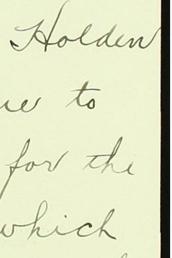 Holden
to
for the
which